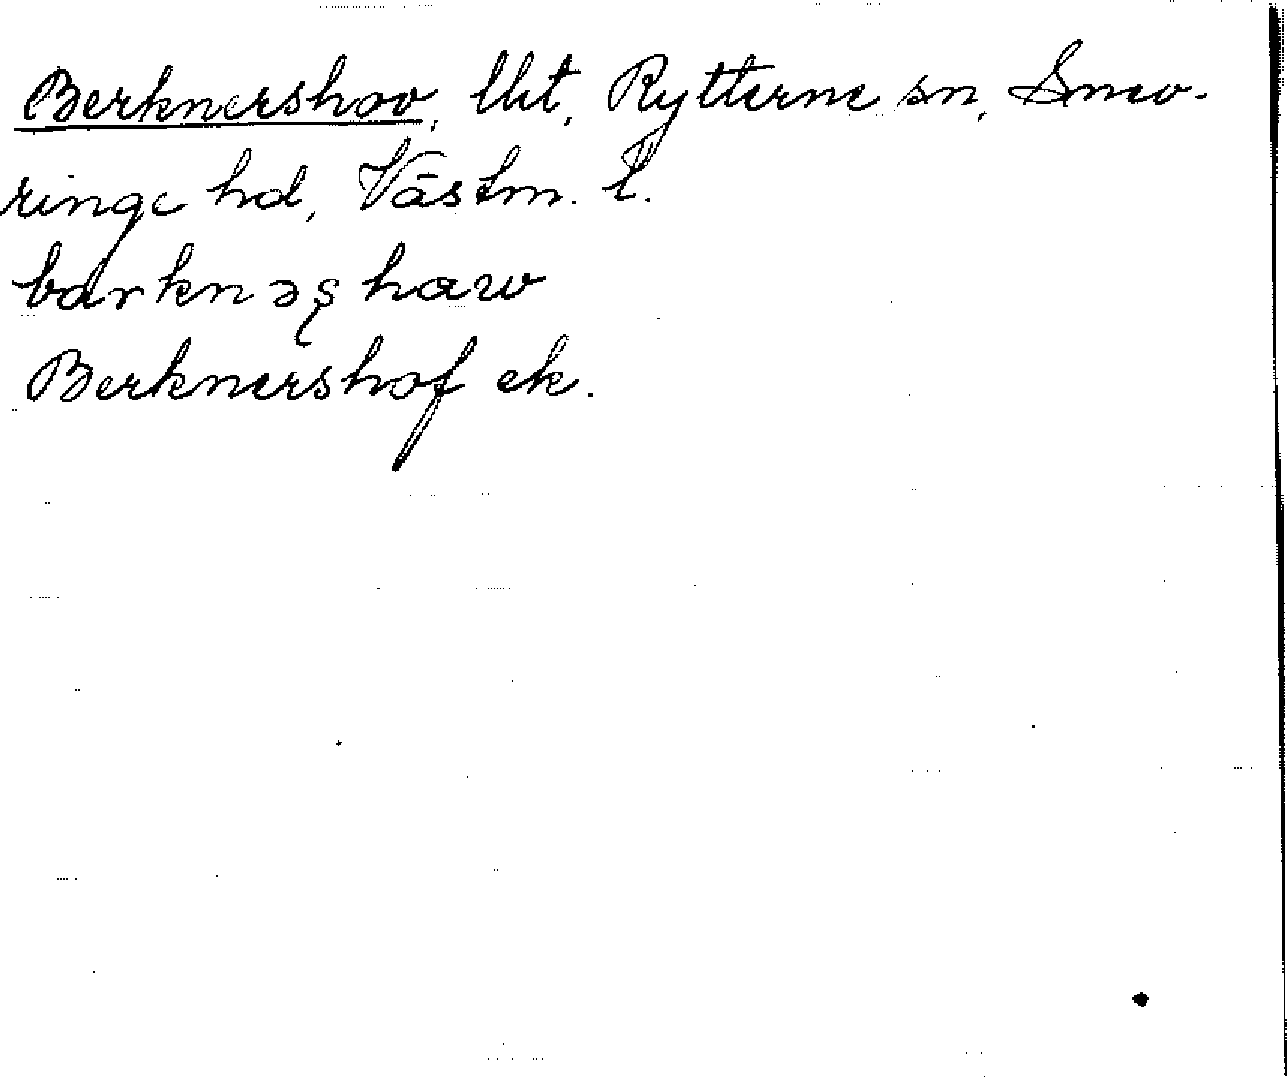 Berknershov, lht, Rytterne sn, Snev-
ringe hd, Västm. l.
bärknəʂhaw
Berknershof ek.